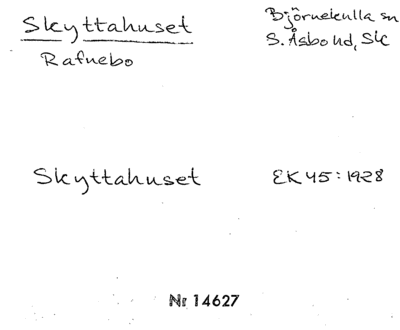 Skyttahuset
Björnekulla sn
Rafnebo
S. Åsbo hd, Sk
Skyttahuset
EK 45:1928
Nr 14627